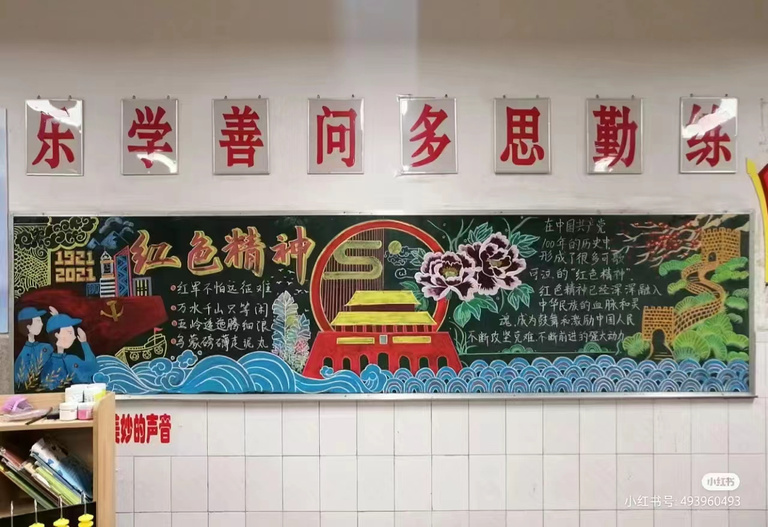 乐学善问多思勤练
1921
2021
红色精神
红军不怕远征难
万水千山只等闲
五岭逶迤腾细浪
乌蒙磅礴走泥丸
在中国共产党
100年的历史中
形成了很多可歌
可颂的"红色精神"
红色精神已经深深融入
中华民族的血脉和灵
魂,成为鼓舞和激励中国人民
不断攻坚克难、不断前进的强大动力
美妙的声音
小红书
小红书号: 493960493